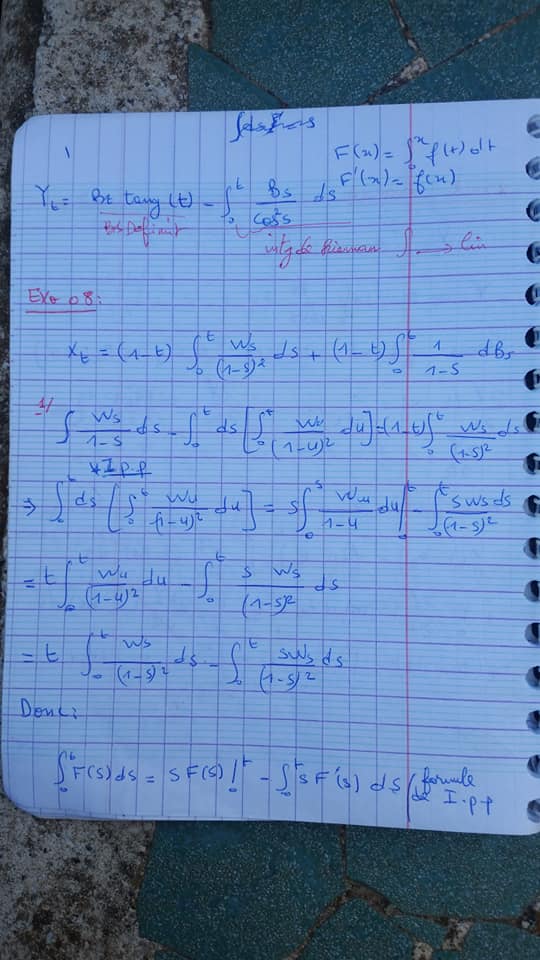 F(x) = ∫₀ˣ f(t) dt
Yₜ = Bt tang(t) - ∫₀ᵗ Bs/cos²s ds F'(x) = f(x)
intg de Riemman ∫
Exo 08:
Xₜ = (1-t) ∫₀ᵗ Ws/(1-s)² ds + (1-t) ∫₀ᵗ 1/(1-s) dBs
1/
∫ Ws/(1-s) ds - ∫₀ᵗ ds [∫₀ᵗ Wu/(1-u)² du] = (1-t) ∫₀ᵗ Ws/(1-s)² ds
* I p.p
⇒ ∫₀ᵗ ds [∫₀ᵗ Wu/(1-u)² du] = s ∫₀ˢ Wu/(1-u) du |₀ᵗ - ∫₀ᵗ sWs ds/(1-s)²
= t ∫₀ᵗ Wu/(1-u)² du - ∫₀ᵗ s Ws/(1-s)² ds
= t ∫₀ᵗ Ws/(1-s)² ds - ∫₀ᵗ sWs ds/(1-s)²
Donc:
∫₀ᵗ F(s) ds = s F(s) !₀ᵗ - ∫₀ᵗ s F'(s) ds / formule
de I.p.p